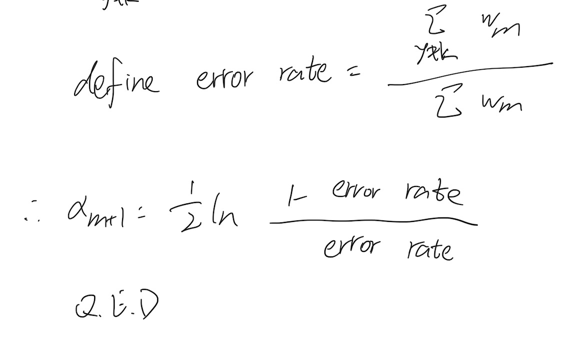 y≠k
define error rate = \frac{\sum_{y≠k} w_m}{\sum w_m}
∴ α_{m+1} = \frac{1}{2} ln \frac{1 - error rate}{error rate}
Q.E.D